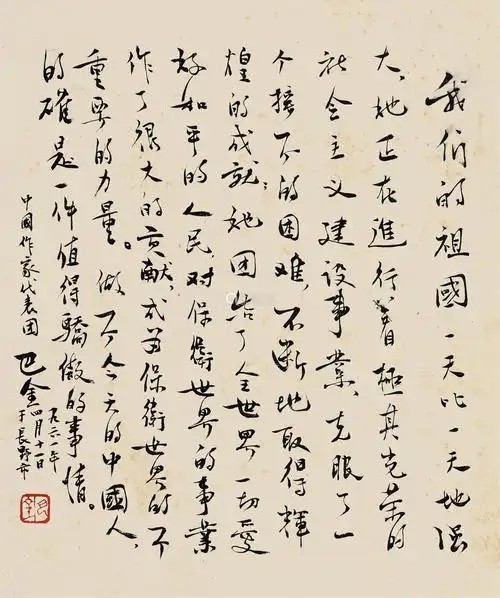 我们的祖國一天比一天地强
大、她正在進行着極其光荣的
社会主义建设事業,克服了一
个接一个的困难,不断地取得輝
煌的成就;她团结了全世界一切爱
好和平的人民,对保衛世界的事業
作了很大的贡献,成为保衛世界的一个
重要的力量。做一个今天的中國人,
的確是一件值得驕傲的事情。
中國作家代表团
巴金
一九六一年
四月十一日
于長野市
巴金